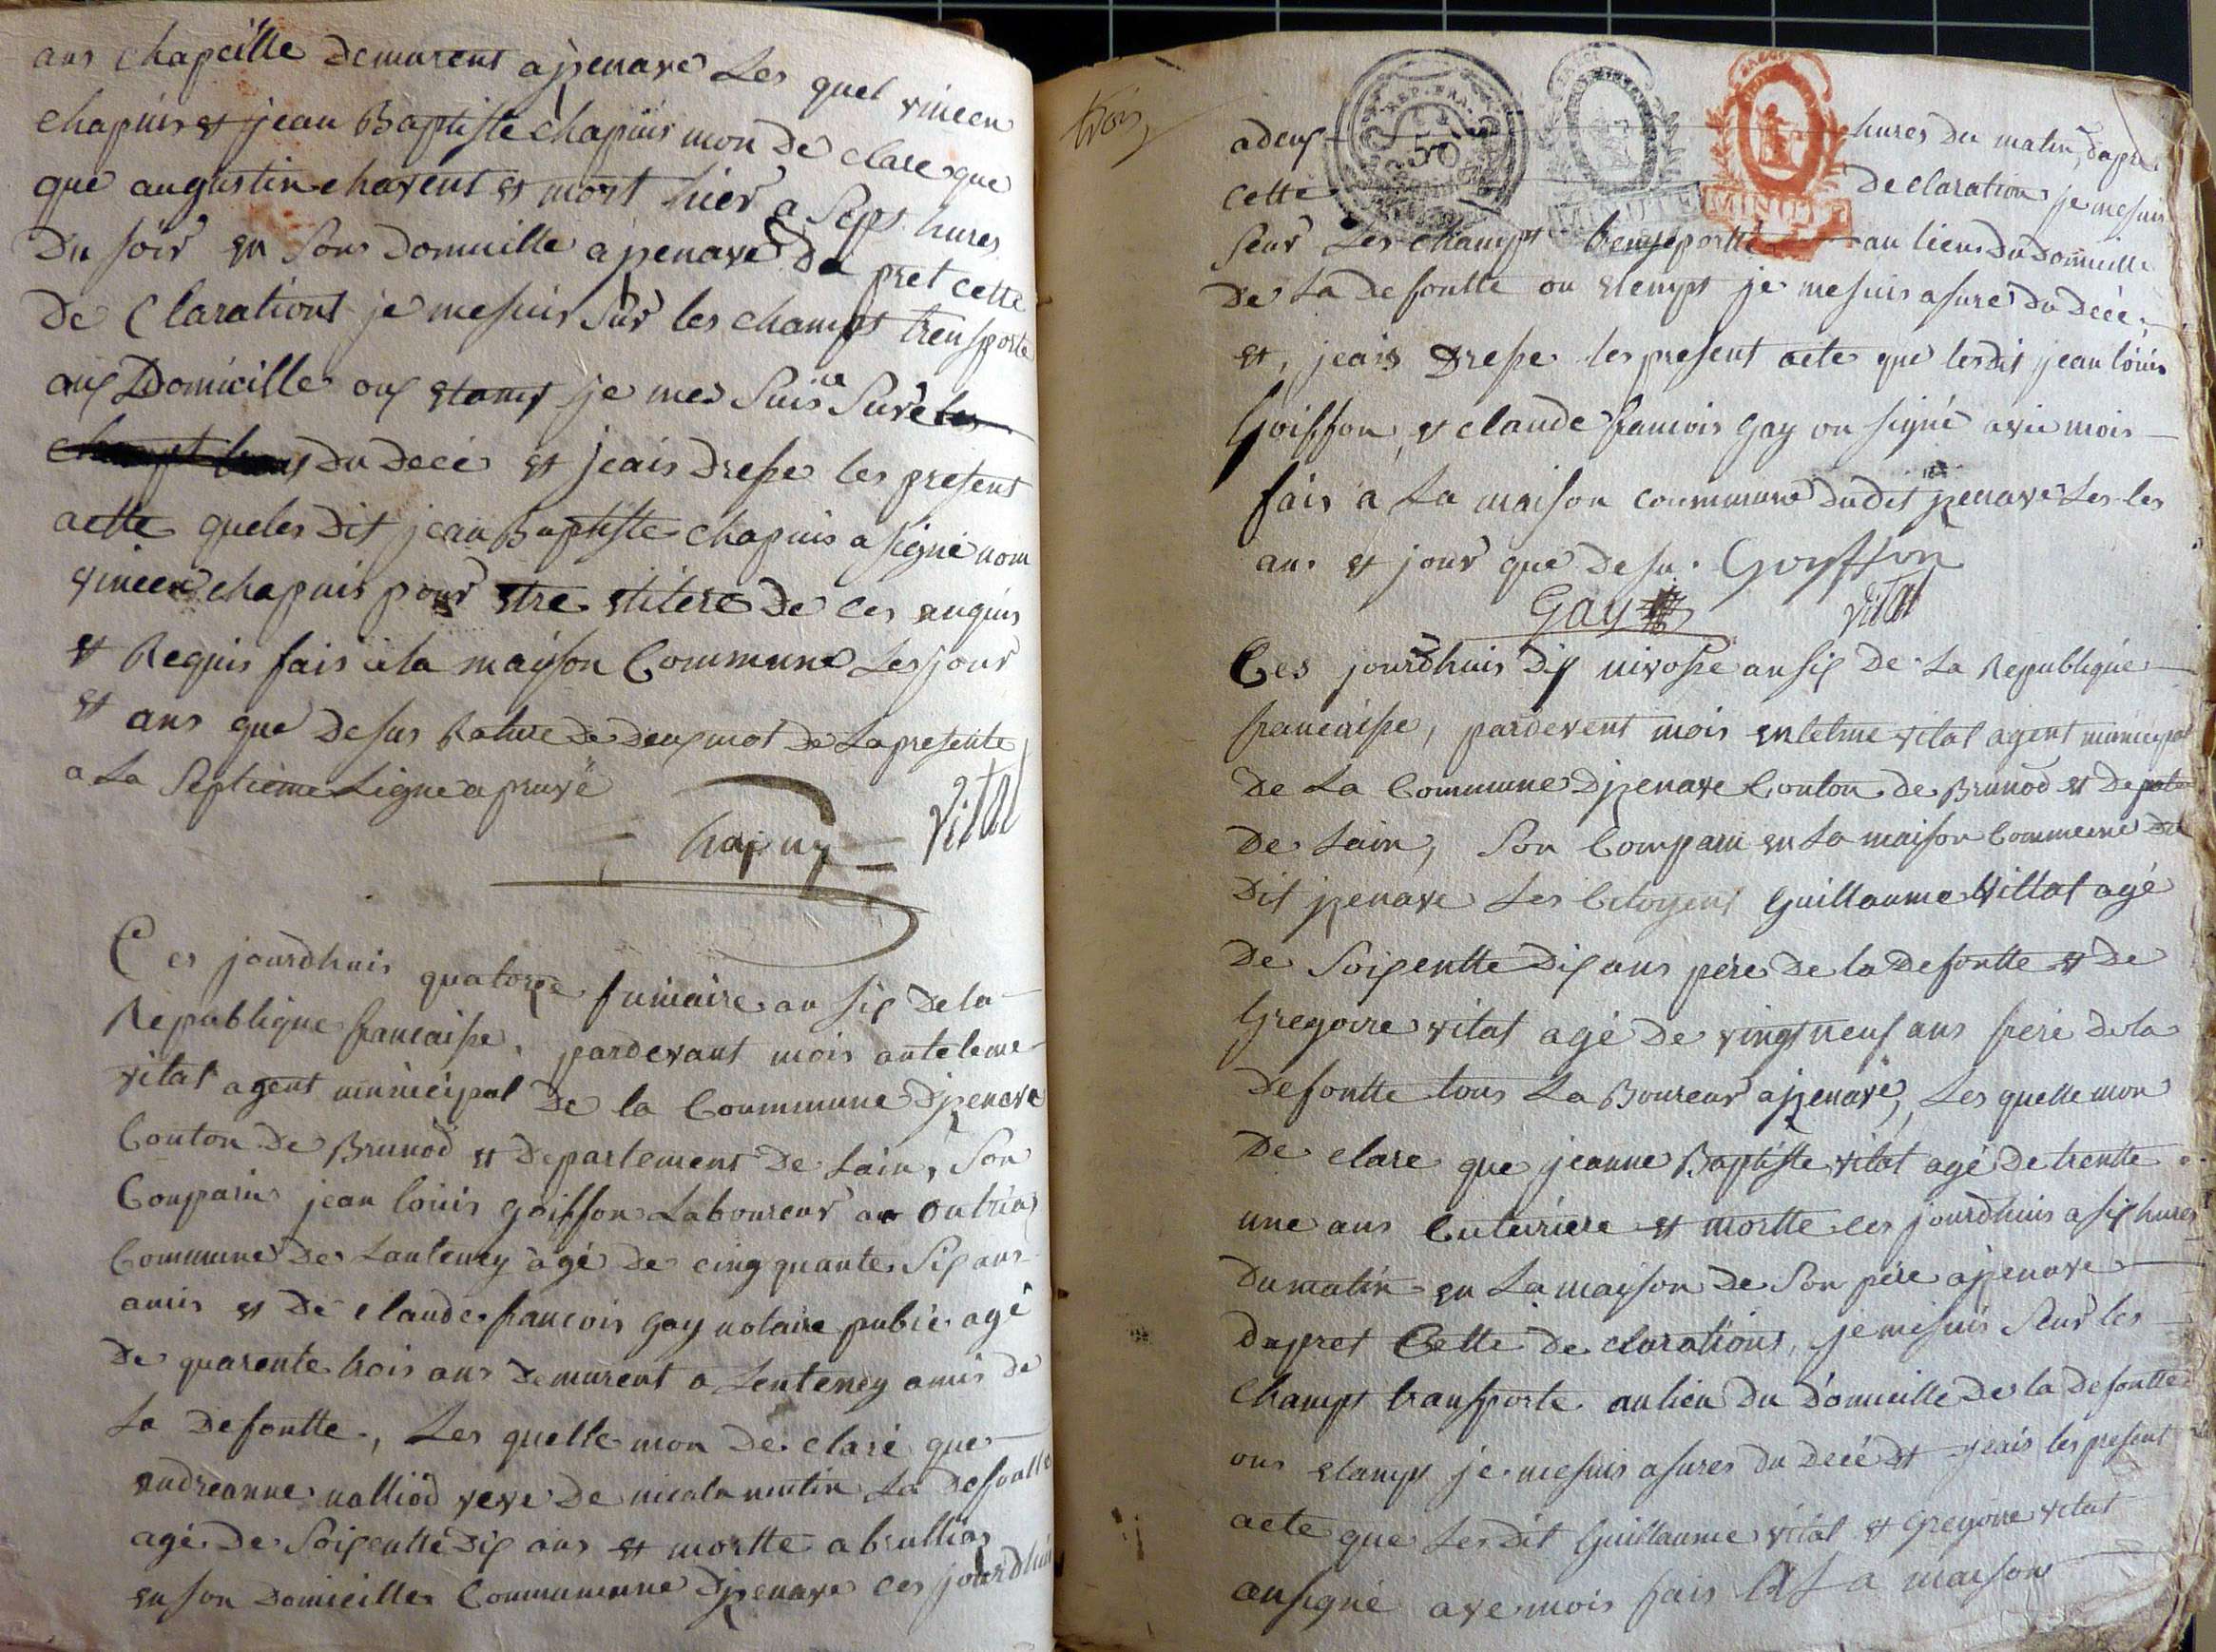 ans chapeille demurent a jzenave Les quel vincen
chapuis et jean Baptiste chapuis mon de clare que
que augustin chavent et mort hier a sept hures
du soir en son domicille a jzenave da pret cette
de Clarations je mesuis sur les champt trensporte
aux Domicille oux etamt je me suis a sure les
champt trens du decé et jeais dresse les present
actte que les dit jean Baptiste chapuis a signé nom
vincen chapuis pour etre etiteré de ces enquis
et Requis fais a la mayson Commune Les jour
et ans que desus Rature de deux mot de La presente
a La Septieme Ligne apruvé
Chapuy Vital
Ces jourdhuis quatorze frimaire an six de la
Republique francaisse, pardevant mois antelme
vital agent municipal de la Commune djzenave
Conton de Brunod et departement de Lain, Son
Comparus jean louis goiffon Laboureur a outriaz
Commune de Lanteney agé de cinqquante six ans
amis et de claude francois Gay notaire public agé
de quarente trois ans demurent a Lenteney amis de
La defontte, Les quelle mon de claré que
endreanne nalliod veve de La defontte
agé de Soixentte dix ans et mortte a brullias
en son domicille Communne djzenave ces jourdhui
trois
a deux hures du matin, dapret
Cette declaration je mesuis
seur Les champt trensporté au lieu du domicille
de La defontte ou etempt je mesuis asuré du decé,
et, jeais dresse les present acte que lesdit jean louis
Goiffon, et claude francois Gay on signé avec mois
fais a La maison commune dudet jzenave Les les
ans et jour que desu. Goyffon
Gay Vital
Ces jourdhuis dix nivosse an six de La Republique
francaisse, pardevent mois entelme vital agent municipal
de La Commune djzenave Conton de Brunod et depate
de Lain, Son Comparu en La maison Commune du
dit jzenave Les Citoyens Guillaume Vittat agé
de Soixentte dix ans pere de la defontte et de
Gregoire vitat agé de vingt neuf ans frere de la
defontte tous La Boureur a jzenave, Les quelle mon
de clare que jeanne Baptiste vitat agé de trentte
une ans Cuteuriere et mortte ces jourdhuis a six hures
du matin en La mayson de Son pere a jzenave
dapret Cette de clarations, je mesuis seur les
Champt transporte au lieu du domicille de la defontte
ous etampt je mesuis asures du decé et jeais les present
acte que Les dit Guillaume vitat et Gregoire vitat
an signé ave mois fais A La maison